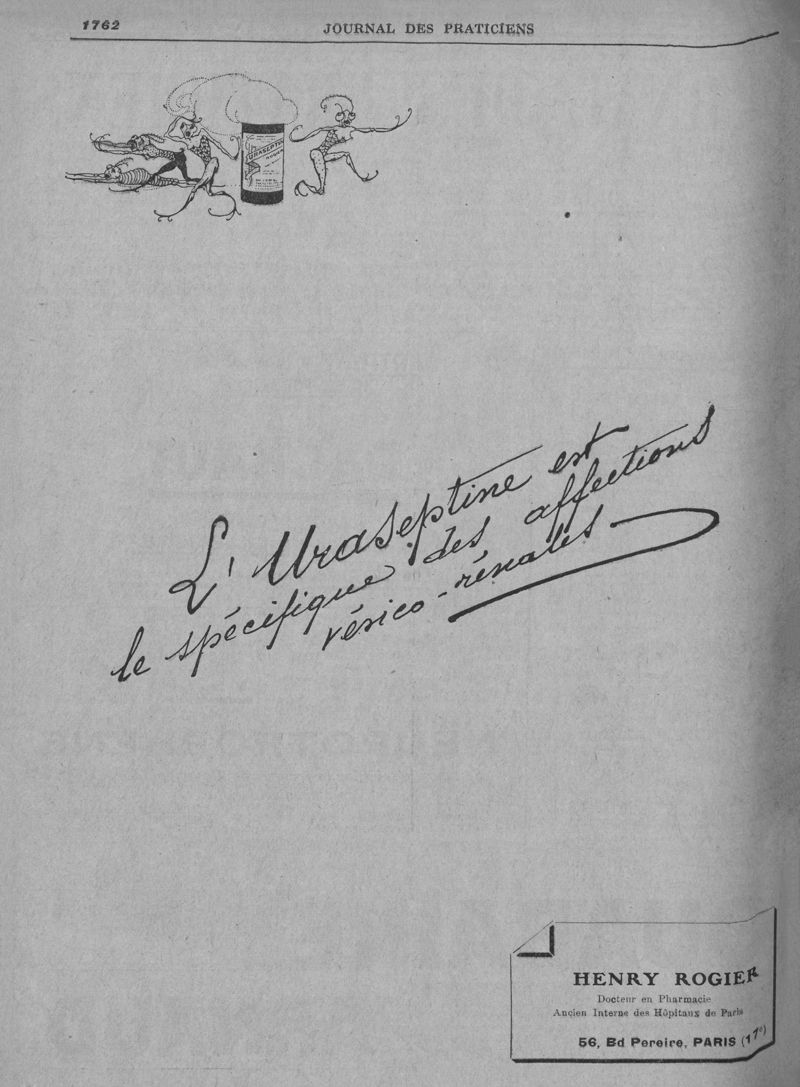 1762
JOURNAL DES PRATICIENS
URASEPTINE
ROGIER
L'Uraseptine est
le spécifique des affections
vésico-rénales
HENRY ROGIER
Docteur en Pharmacie
Ancien Interne des Hôpitaux de Paris
56, Bd Pereire, PARIS (17e)